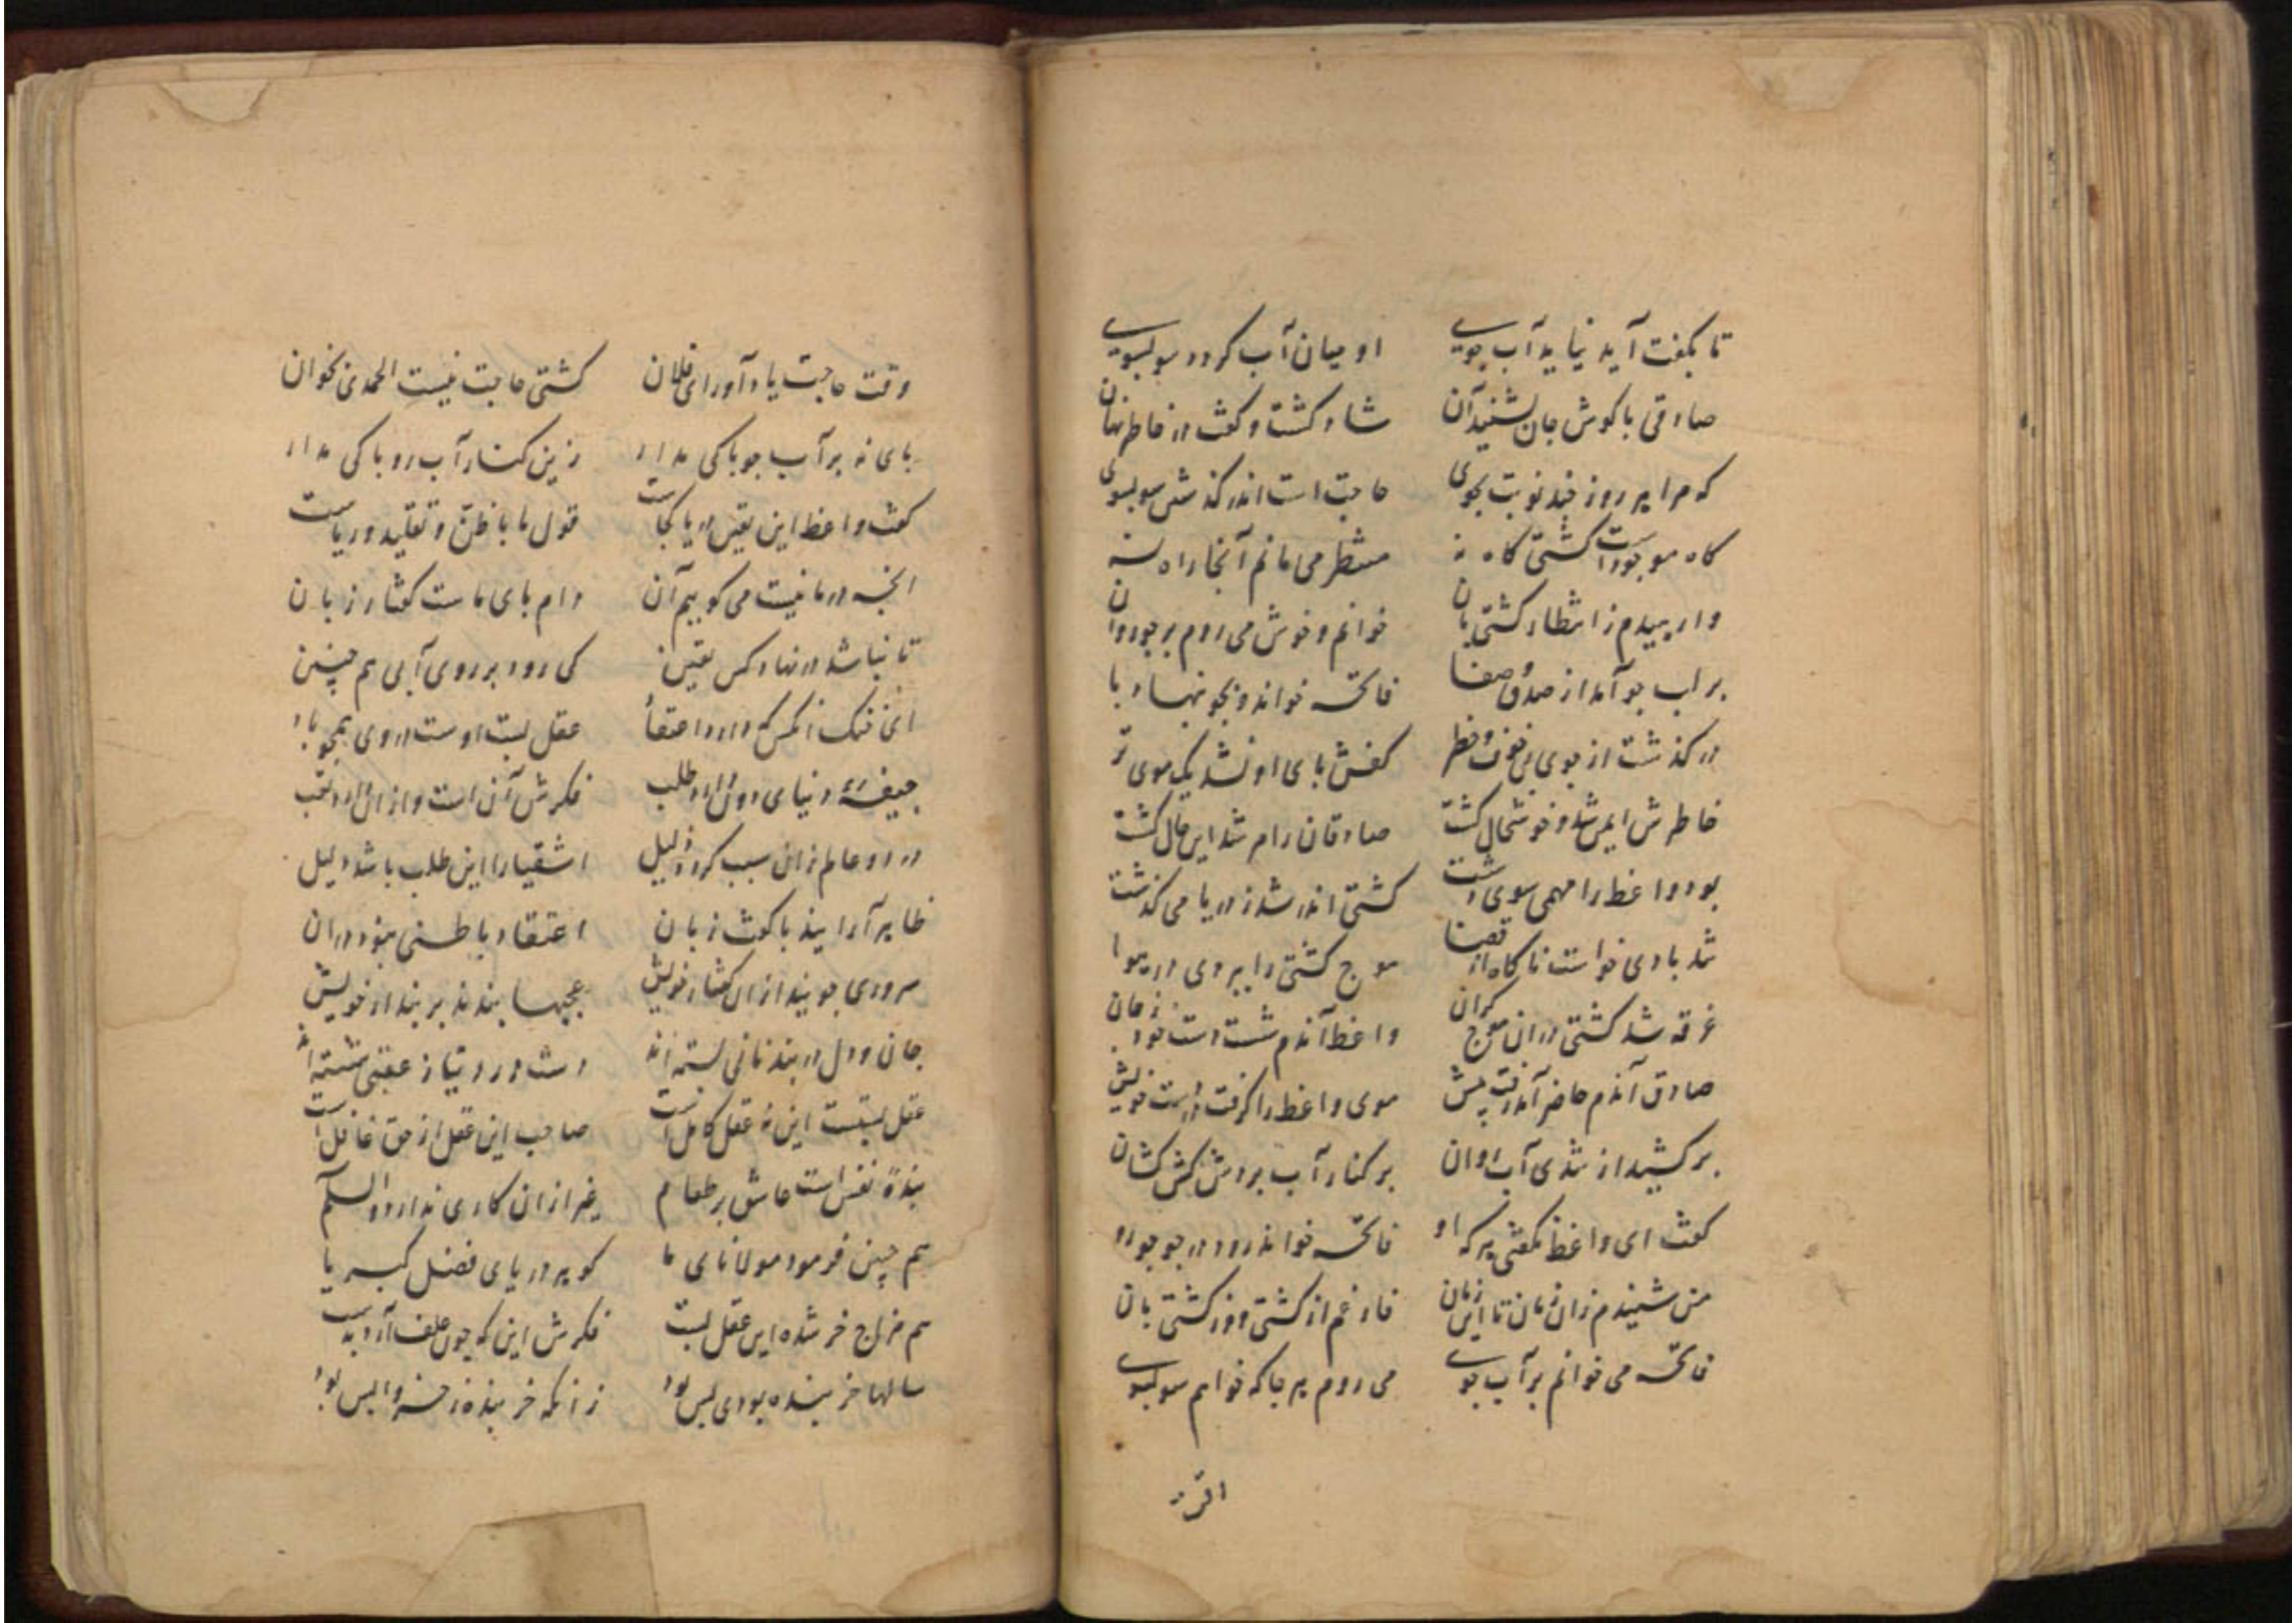 تا بکفت آید نیاید آب جوی او میان آب کردد سوبسوی
صادقی با کوش جان بشنید آن شاد کشت و کفت در خاطر نهان
که مرا هر روز چند نوبت بجوی حاجت است اندر کذشتن سوبسوی
کاه موجود است کشتی کاه نه منتظر می مانم آنجا راه نه
وارهیدم ز انتظار کشتی بان خوانم و خوش می روم بر جو روان
بر لب جو آمد از صدق و صفا فاتحه خواند و بجو نهاد پا
در کذشت از جوی بی خوف و خطر کفش پای او نشد یک موی تر
خاطرش ایمن شد و خوشحال کشت صادقان را هم شد این حال کشت
بود واعظ را مهمی سوی دشت کشتی اندر شد ز دریا می کذشت
شد بادی خواست ناکاه از قضا موج کشتی را ببردی در هوا
غرقه شد کشتی در ان موج کران واعظ آندم شست دست خود ز جان
صادق آندم حاضر آمد رفت پیش موی واعظ را کرفت در دست خویش
بر کشید از تندی آب روان بر کنار آب بردش کش کشان
کفت ای واعظ نکفتی هر که او فاتحه خواند رود در جو بجو
من شنیدم زان زمان تا این زمان فارغم از کشتی و ز کشتی بان
فاتحه می خوانم بر آب جوی می روم هر جا که خواهم سوبسوی
وقت حاجت یاد آور ای فلان کشتی حاجت نیست الحمدی بخوان
پای نه بر آب جو باکی مدار زین کنار آب رو باکی مدار
کفت واعظ این یقین در ما کجاست قول ما با ظن و تقلید و ریاست
انچه در ما نیست می کوییم آن دام پای ماست کفتار زبان
تا نباشد در نهاد کس یقین کی رود بر روی آبی هم چنین
ای خنک انکس که دارد اعتقاد عقل پست اوست در وی همچو باد
جیفهٔ دنیای دون دارد طلب فکرش آن است و از ان دارد تعب
در دو عالم زان سبب کردد ذلیل اشقیا را این طلب باشد دلیل
ظاهر آرایند با کفت زبان اعتقاد باطنی نبود در ان
سروری جویند از ان کفتار خویش عجبها بندند بر پندار خویش
جان و دل در بند نانی بسته اند دست و رو دنیا ز عقبی شسته اند
عقل پستست این نه عقل کامل است صاحب این عقل از حق غافل است
بندهٔ نفس است عاشق بر طعام غیر از ان کاری ندارد والسلام
هم چنین فرمود مولانای ما کوهر دریای فضل کبریا
هم مزاج خر شده این عقل پست فکرش این که چون علف آرد بدست
سالها خر بنده بودی بس بود زانکه خر بنده ز خر واپس بود